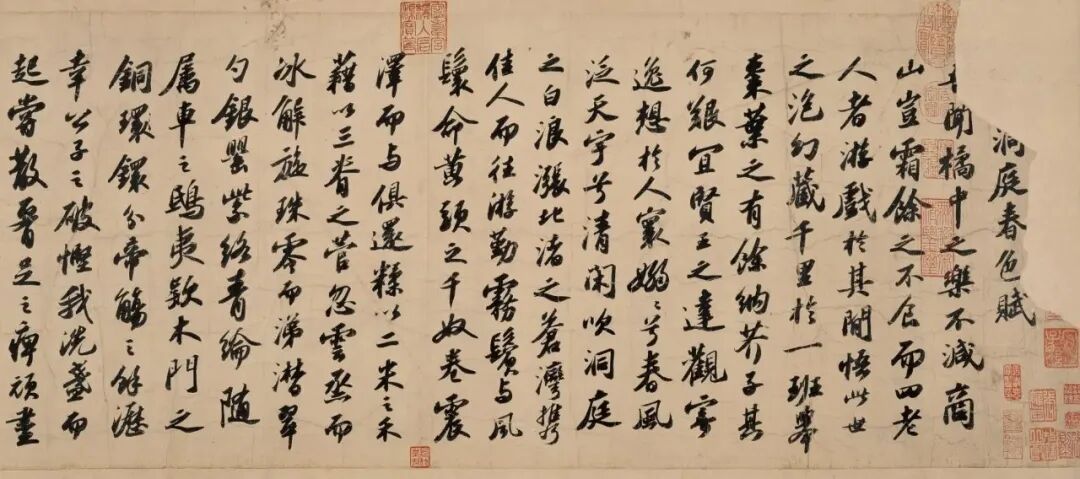 洞庭春色賦
聞橘中之樂不減商
山豈霜餘之不食而四老
人者游戲於其間悟此世
之泡幻藏千里於一班舉
棗葉之有餘納芥子其
何艱宜賢王之達觀寄
逸想於人寰嫋〻兮春風
泛天宇兮清閑吹洞庭
之白浪漲北渚之蒼灣攜
佳人而往游勤霧鬢與風
鬟命黃頭之千奴卷震
澤而與俱還糅以二米之禾
藉以三脊之菅忽雲烝而
冰解旋珠零而涕潸翠
勺銀罌紫絡青綸隨
属車之鴟夷款木門之
銅環鐶分帝觴之餘瀝
幸公子之破慳我洗盞而
起嘗散腰足之痺頑盡